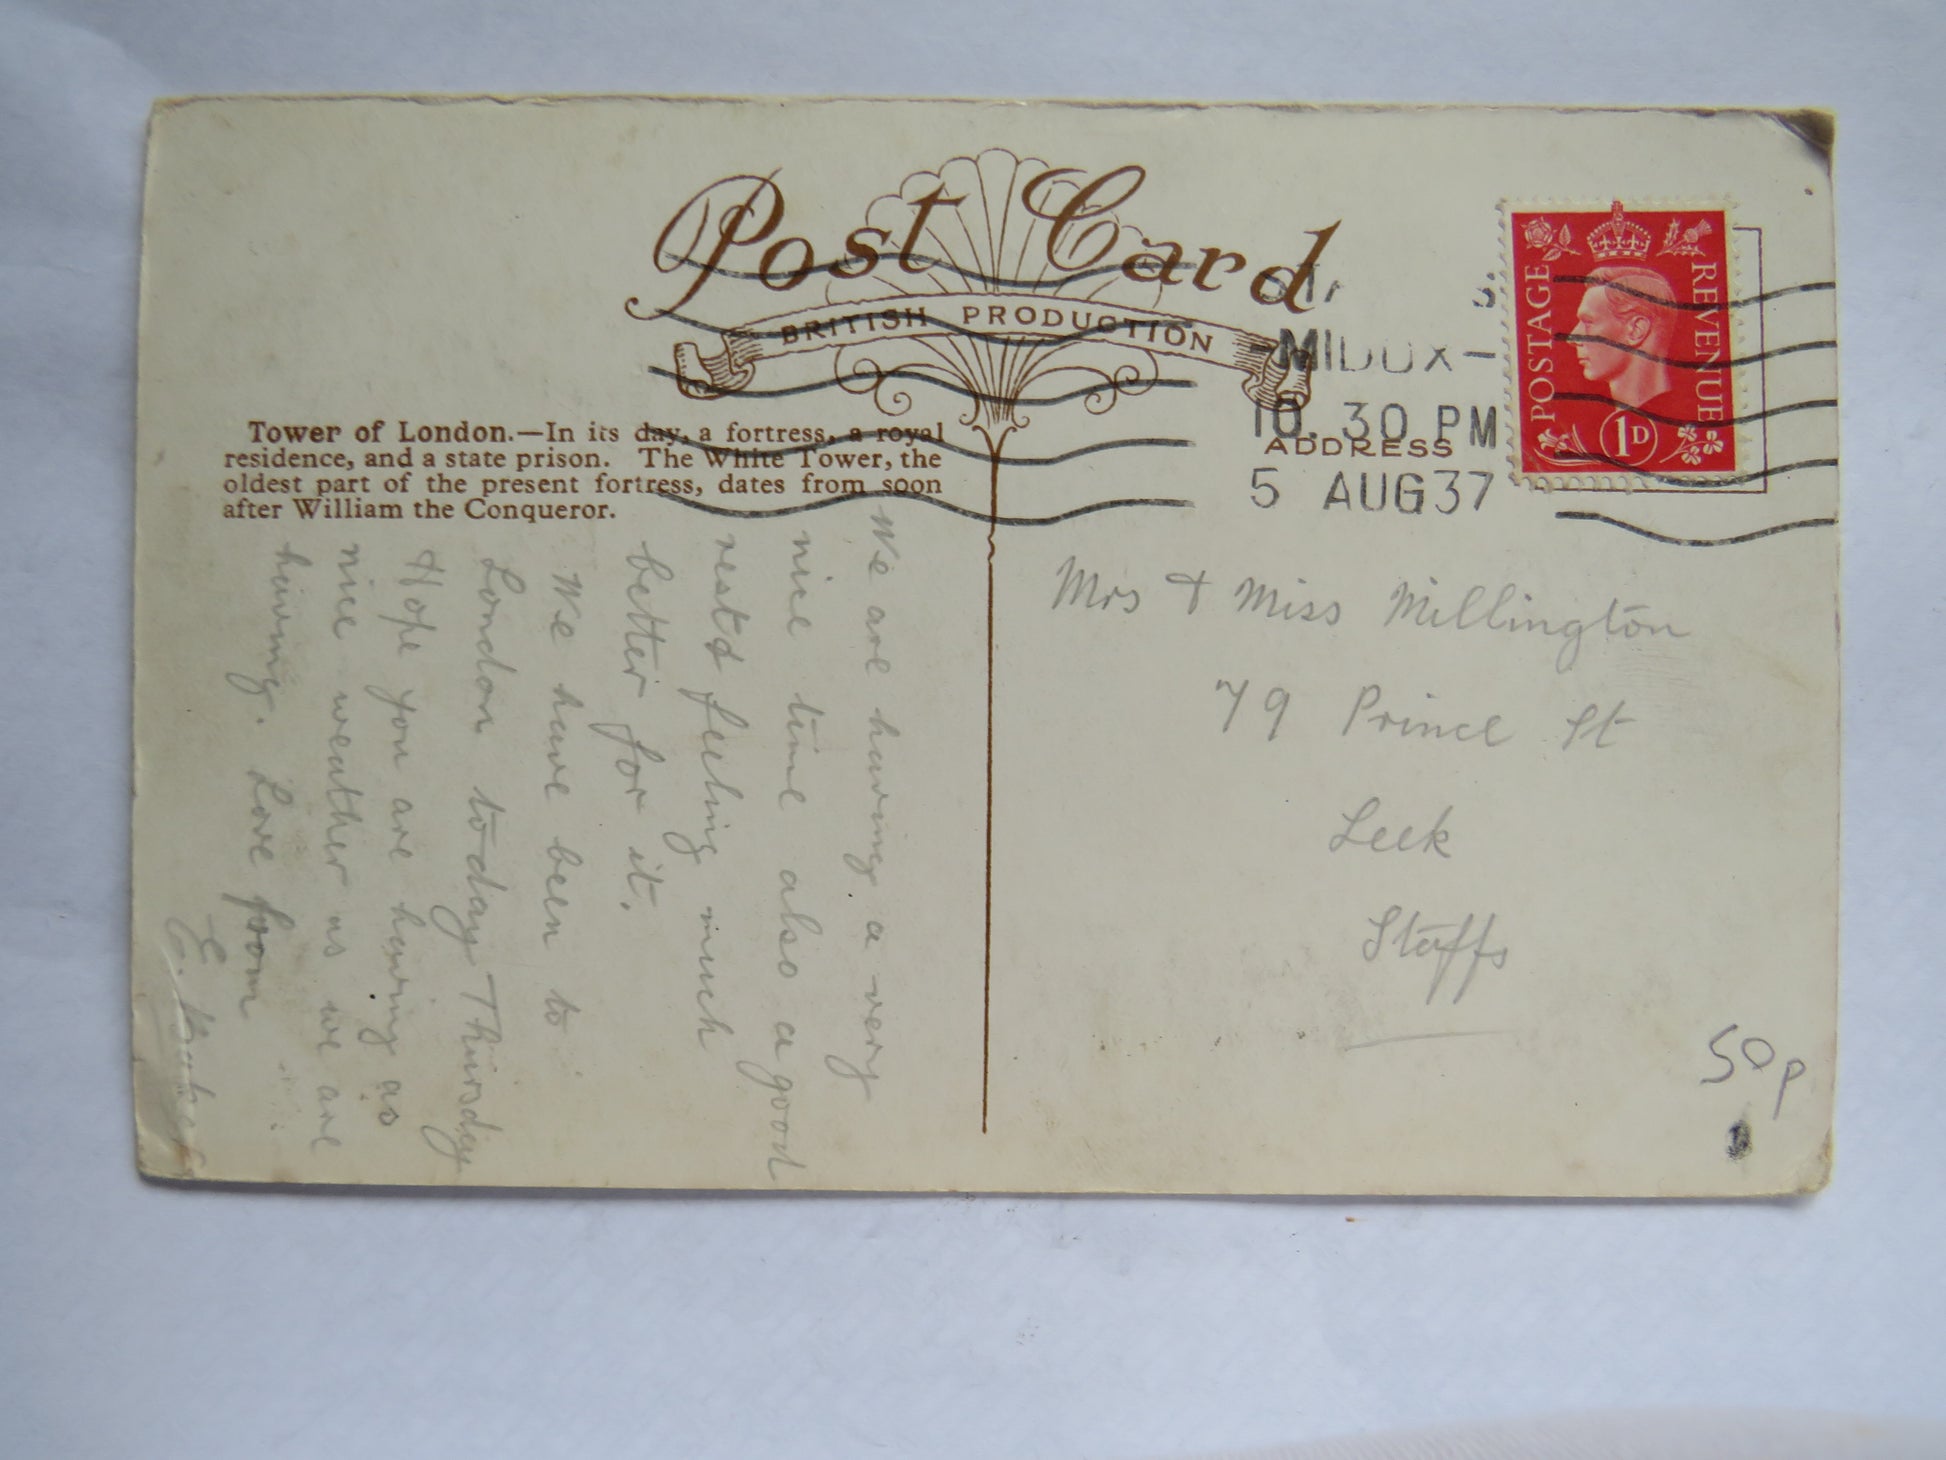 Post Card
BRITISH PRODUCTION
MIDDX-
10.30 PM
5 AUG37
POSTAGE
REVENUE
1D
ADDRESS
Tower of London.—In its day, a fortress, a royal
residence, and a state prison. The White Tower, the
oldest part of the present fortress, dates from soon
after William the Conqueror.
We are having a very
nice time also a good
rest & feeling much
better for it.
We have been to
London today Thursday
Hope you are having as
nice weather as we are
having. Love from
E.
Mrs & Miss Millington
79 Prince St
Leek
Staffs
50p